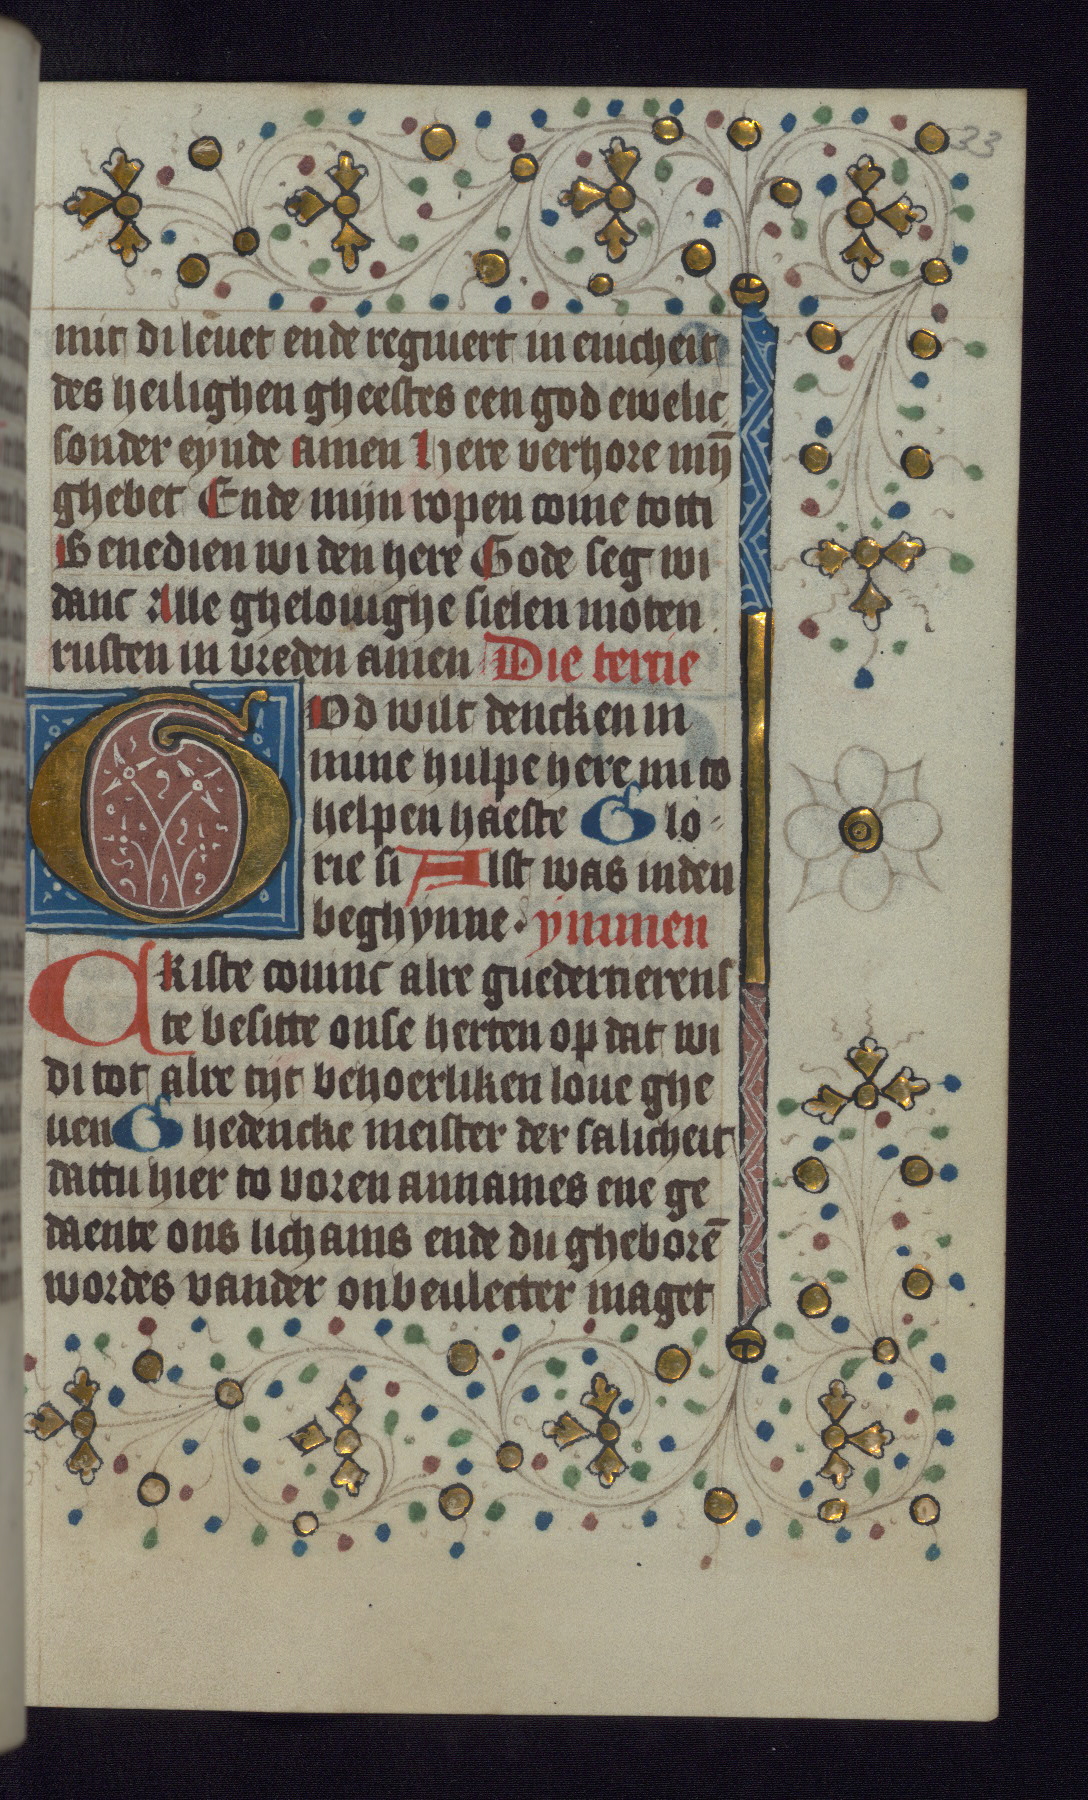 33
mit di leuet ende regniert in enicheit
des heilighen gheestes een god ewelic
sonder eynde amen Here verhore mȳ
ghebet Ende mijn ropen come totti
Benedien wi den here Gode seg wi
danc Alle ghelouighe sielen moten
rusten in vreden amen Die tertie
God wilt dencken in
mine hulpe here mi to
helpen haeste Glo-
rie si Alst was inden
beghynne. ymmen
Criste coninc alre guedertierens
te besitte onse herten op dat wi
di tot alre tijt behoerliken loue ghe
uen Ghedencke meister der salicheit
dattu hier to voren annames ene ge
daente ons lichams ende du gheborē
wordes vander onbeulecter maget